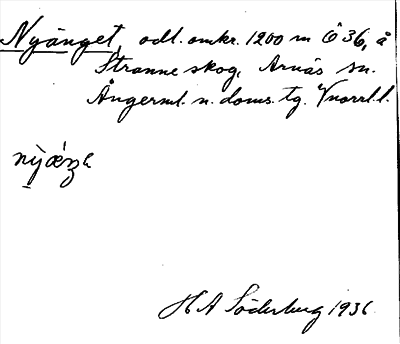 Nyänget, odl. omkr. 1200 m Ö 36, å
Stranne skog, Arnäs sn.
Ångerml. n. doms. tg. Vnorrl. l.
nỳǽŋɛ
H A Söderberg 1936